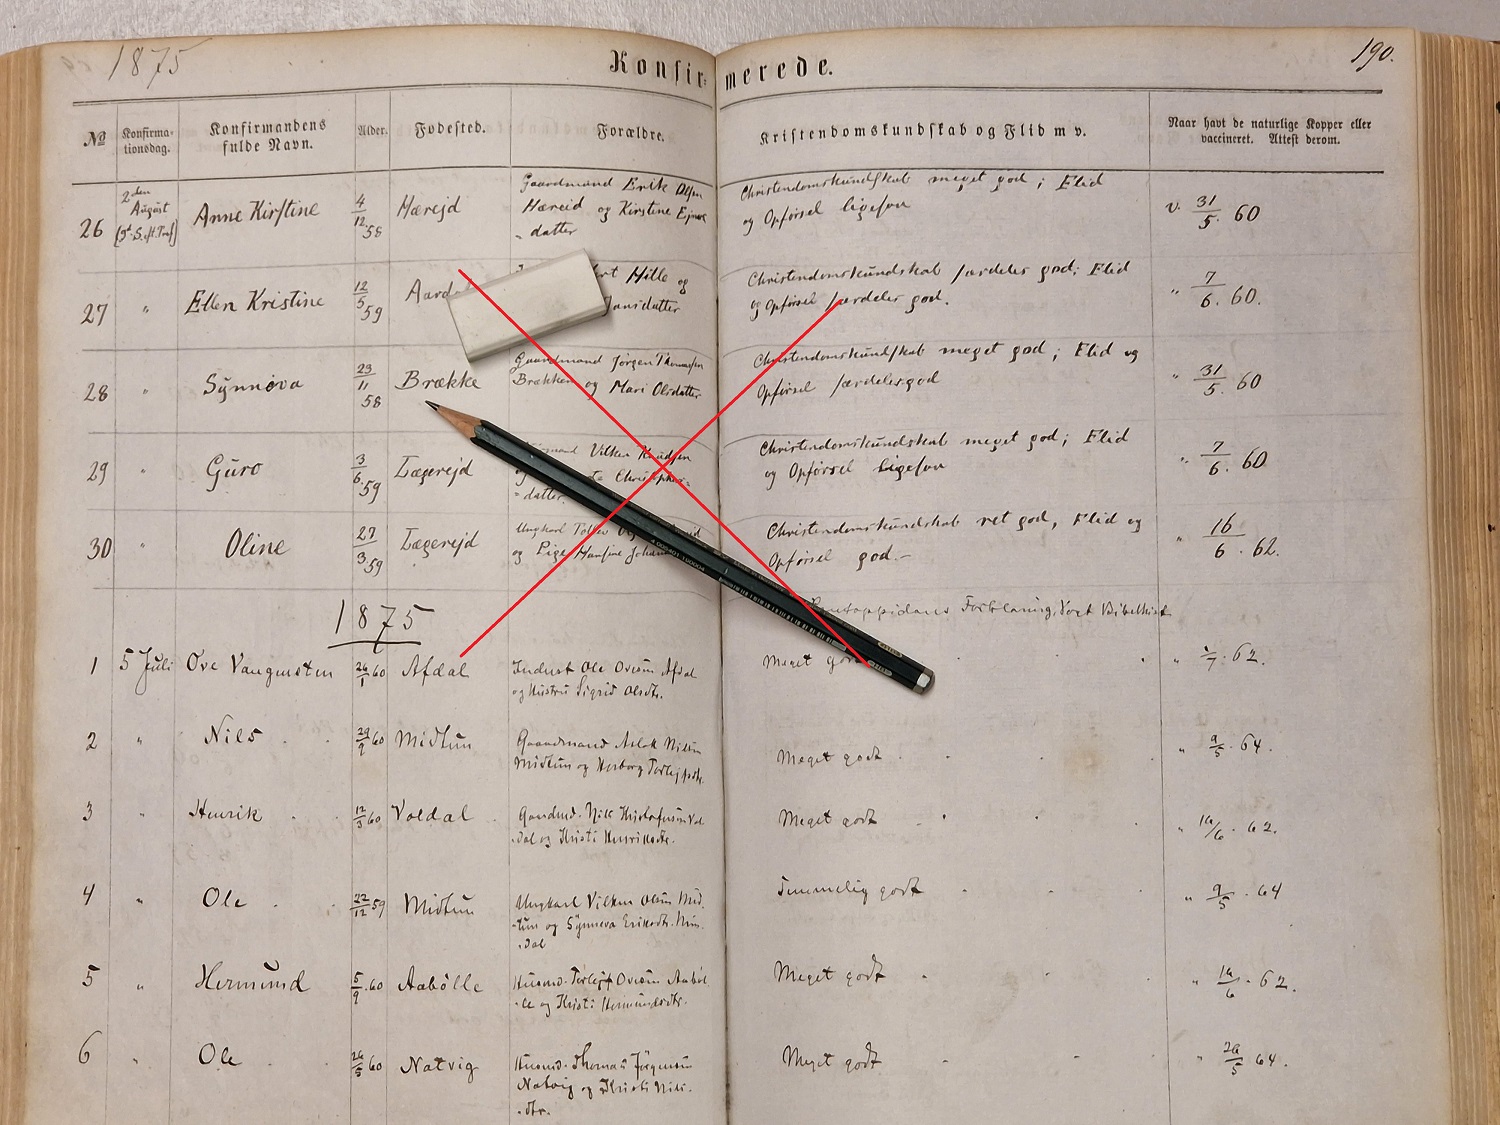 1875
Konfir-
merede.
190.
№
Konfirma-
tionsdag.
Konfirmandens
fulde Navn.
Alder.
Fødested.
Forældre.
Kristendomskundskab og Flid m v.
Naar havt de naturlige Kopper eller
vaccineret. Attest derom.
26 2den August Anne Kirstine 4/12 58 Hæreid
Gaardmand Erik Olsen
Hæreid og Kirstine
datter
Christendomskundskab meget god; Flid
og Opførsel ligesaa
v. 31/5. 60
27 " Ellen Kristine 12/5 59
Hille og
Christendomskundskab særdeles god; Flid
og Opførsel særdeles god.
" 7/6. 60.
28 " Synnøva 23/11 58 Brække
Gaardmand Jørgen Thomassen
Brækken og Mari Olsdatter
Christendomskundskab meget god; Flid og
Opførsel særdeles god
" 31/5. 60
29 " Guro 3/6 59 Lægereid
Vilken Knudsen
datter
Christendomskundskab meget god; Flid
og Opførsel ligesaa
" 7/6. 60
30 " Oline 27/3 59 Lægereid
Ungkarl
og Pige
Christendomskundskab ret god, Flid og
Opførsel god.-
" 16/6. 62.
1875
Forklaring, Vogt
1 5 Juli Ove Vangensten 26/1 60 Afdal
Ole Afdal
og Hustru Sigrid Olsdtr.
Meget godt
" 62.
2 " Nils 29/9 60 Midtun
Gaardmand Aslak Nilsen
Midtun og
Meget godt
" 9/5. 64.
3 " Henrik 12/3 60 Voldal
Gaardmd. Nils
dal og Kristi Henriksdtr.
Meget godt
" 16/6. 62.
4 " Ole 22/12 59 Midtun
Ungkarl Vilken Olsen Mid-
tun og Synneva
dal
Temmelig godt
" 9/5. 64
5 " Hermund 5/9 60 Aabølle
Husmd. Ovesen Aabøl-
le og Kristi Hermundsdtr.
Meget godt
" 16/6. 62.
6 " Ole 26/5 60 Natvig
Husmd. Thomas Jørgensen
Natvig og Kristi Nils-
dtr.
Meget godt
" 26/5 64.